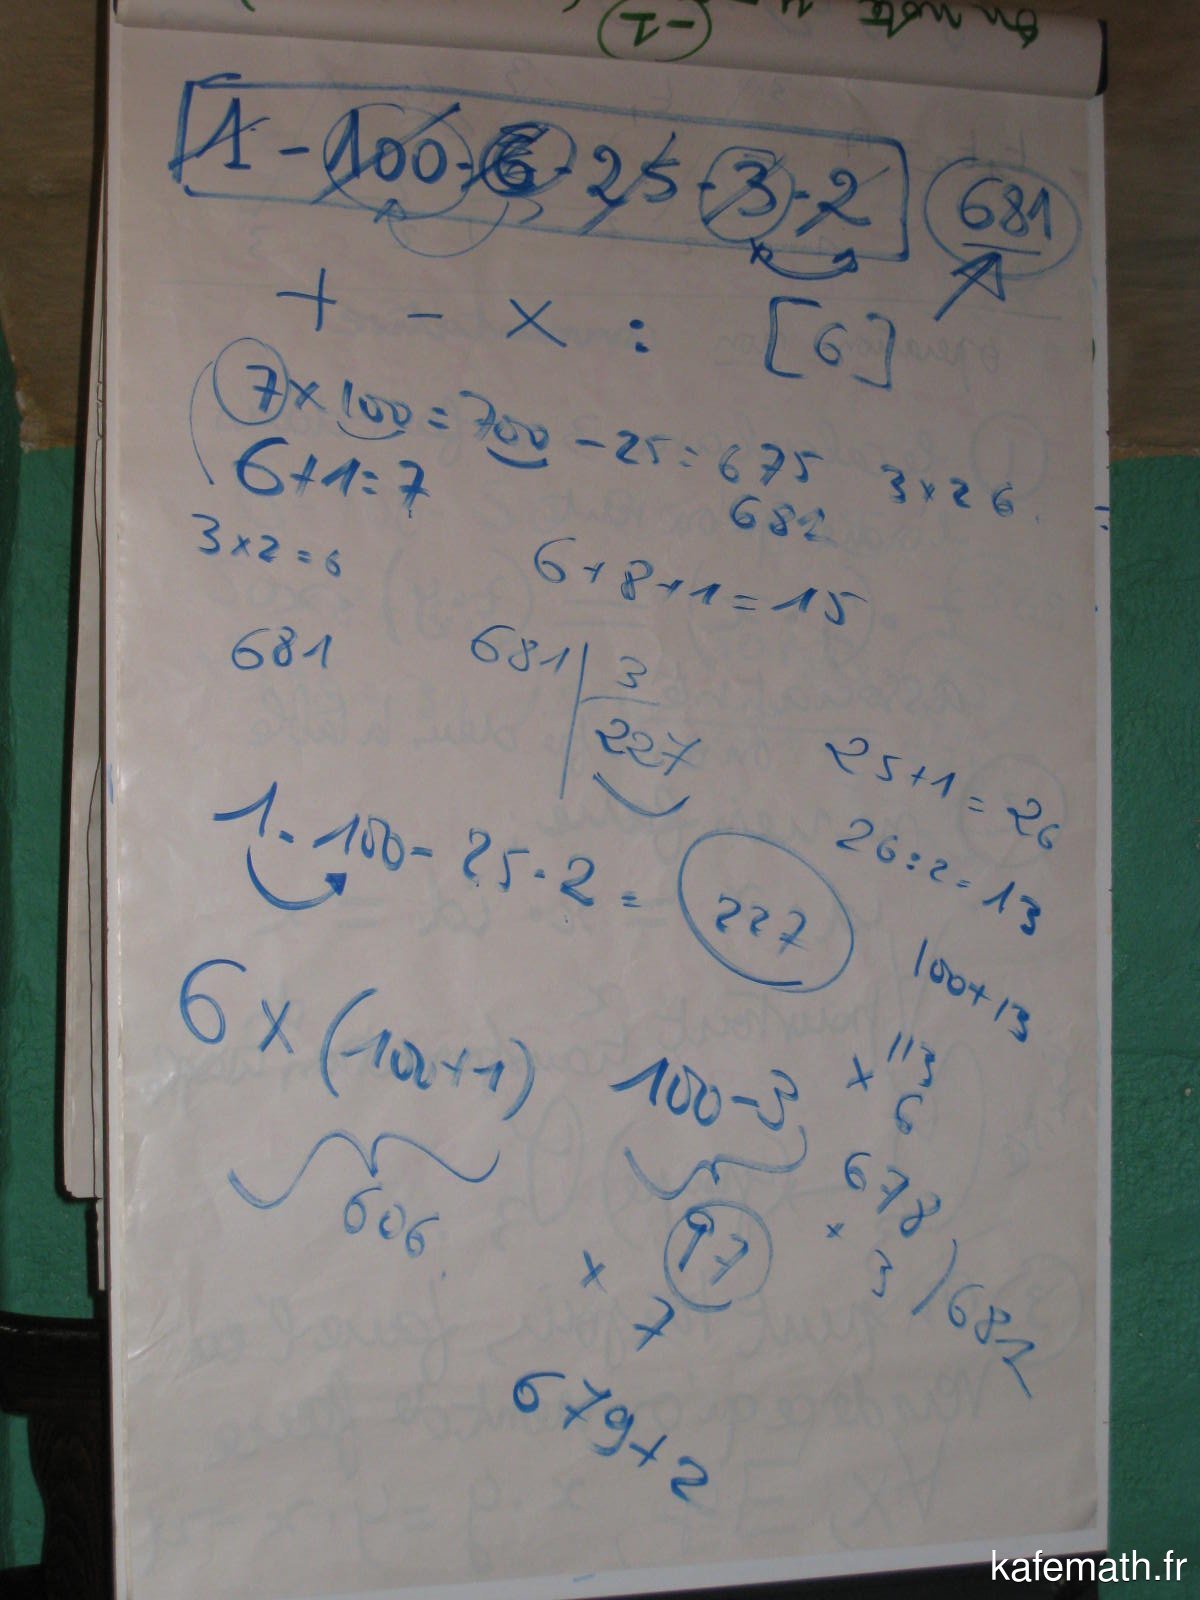 -1
1 - 100 - 6 - 25 - 3 - 2
681
+ - × : [6]
7 × 100 = 700 - 25 = 675
682
3 × 26
6 + 1 = 7
3 × 2 = 6
6 + 8 + 1 = 15
681
681 | 3
227
25 + 1 = 26
26 : 2 = 13
1 - 100 - 25 - 2 =
227
100 + 13
113
× 6
6 × (100 + 1)
100 - 3
606
97
× 7
678
× 3
682
679 + 2
kafemath.fr